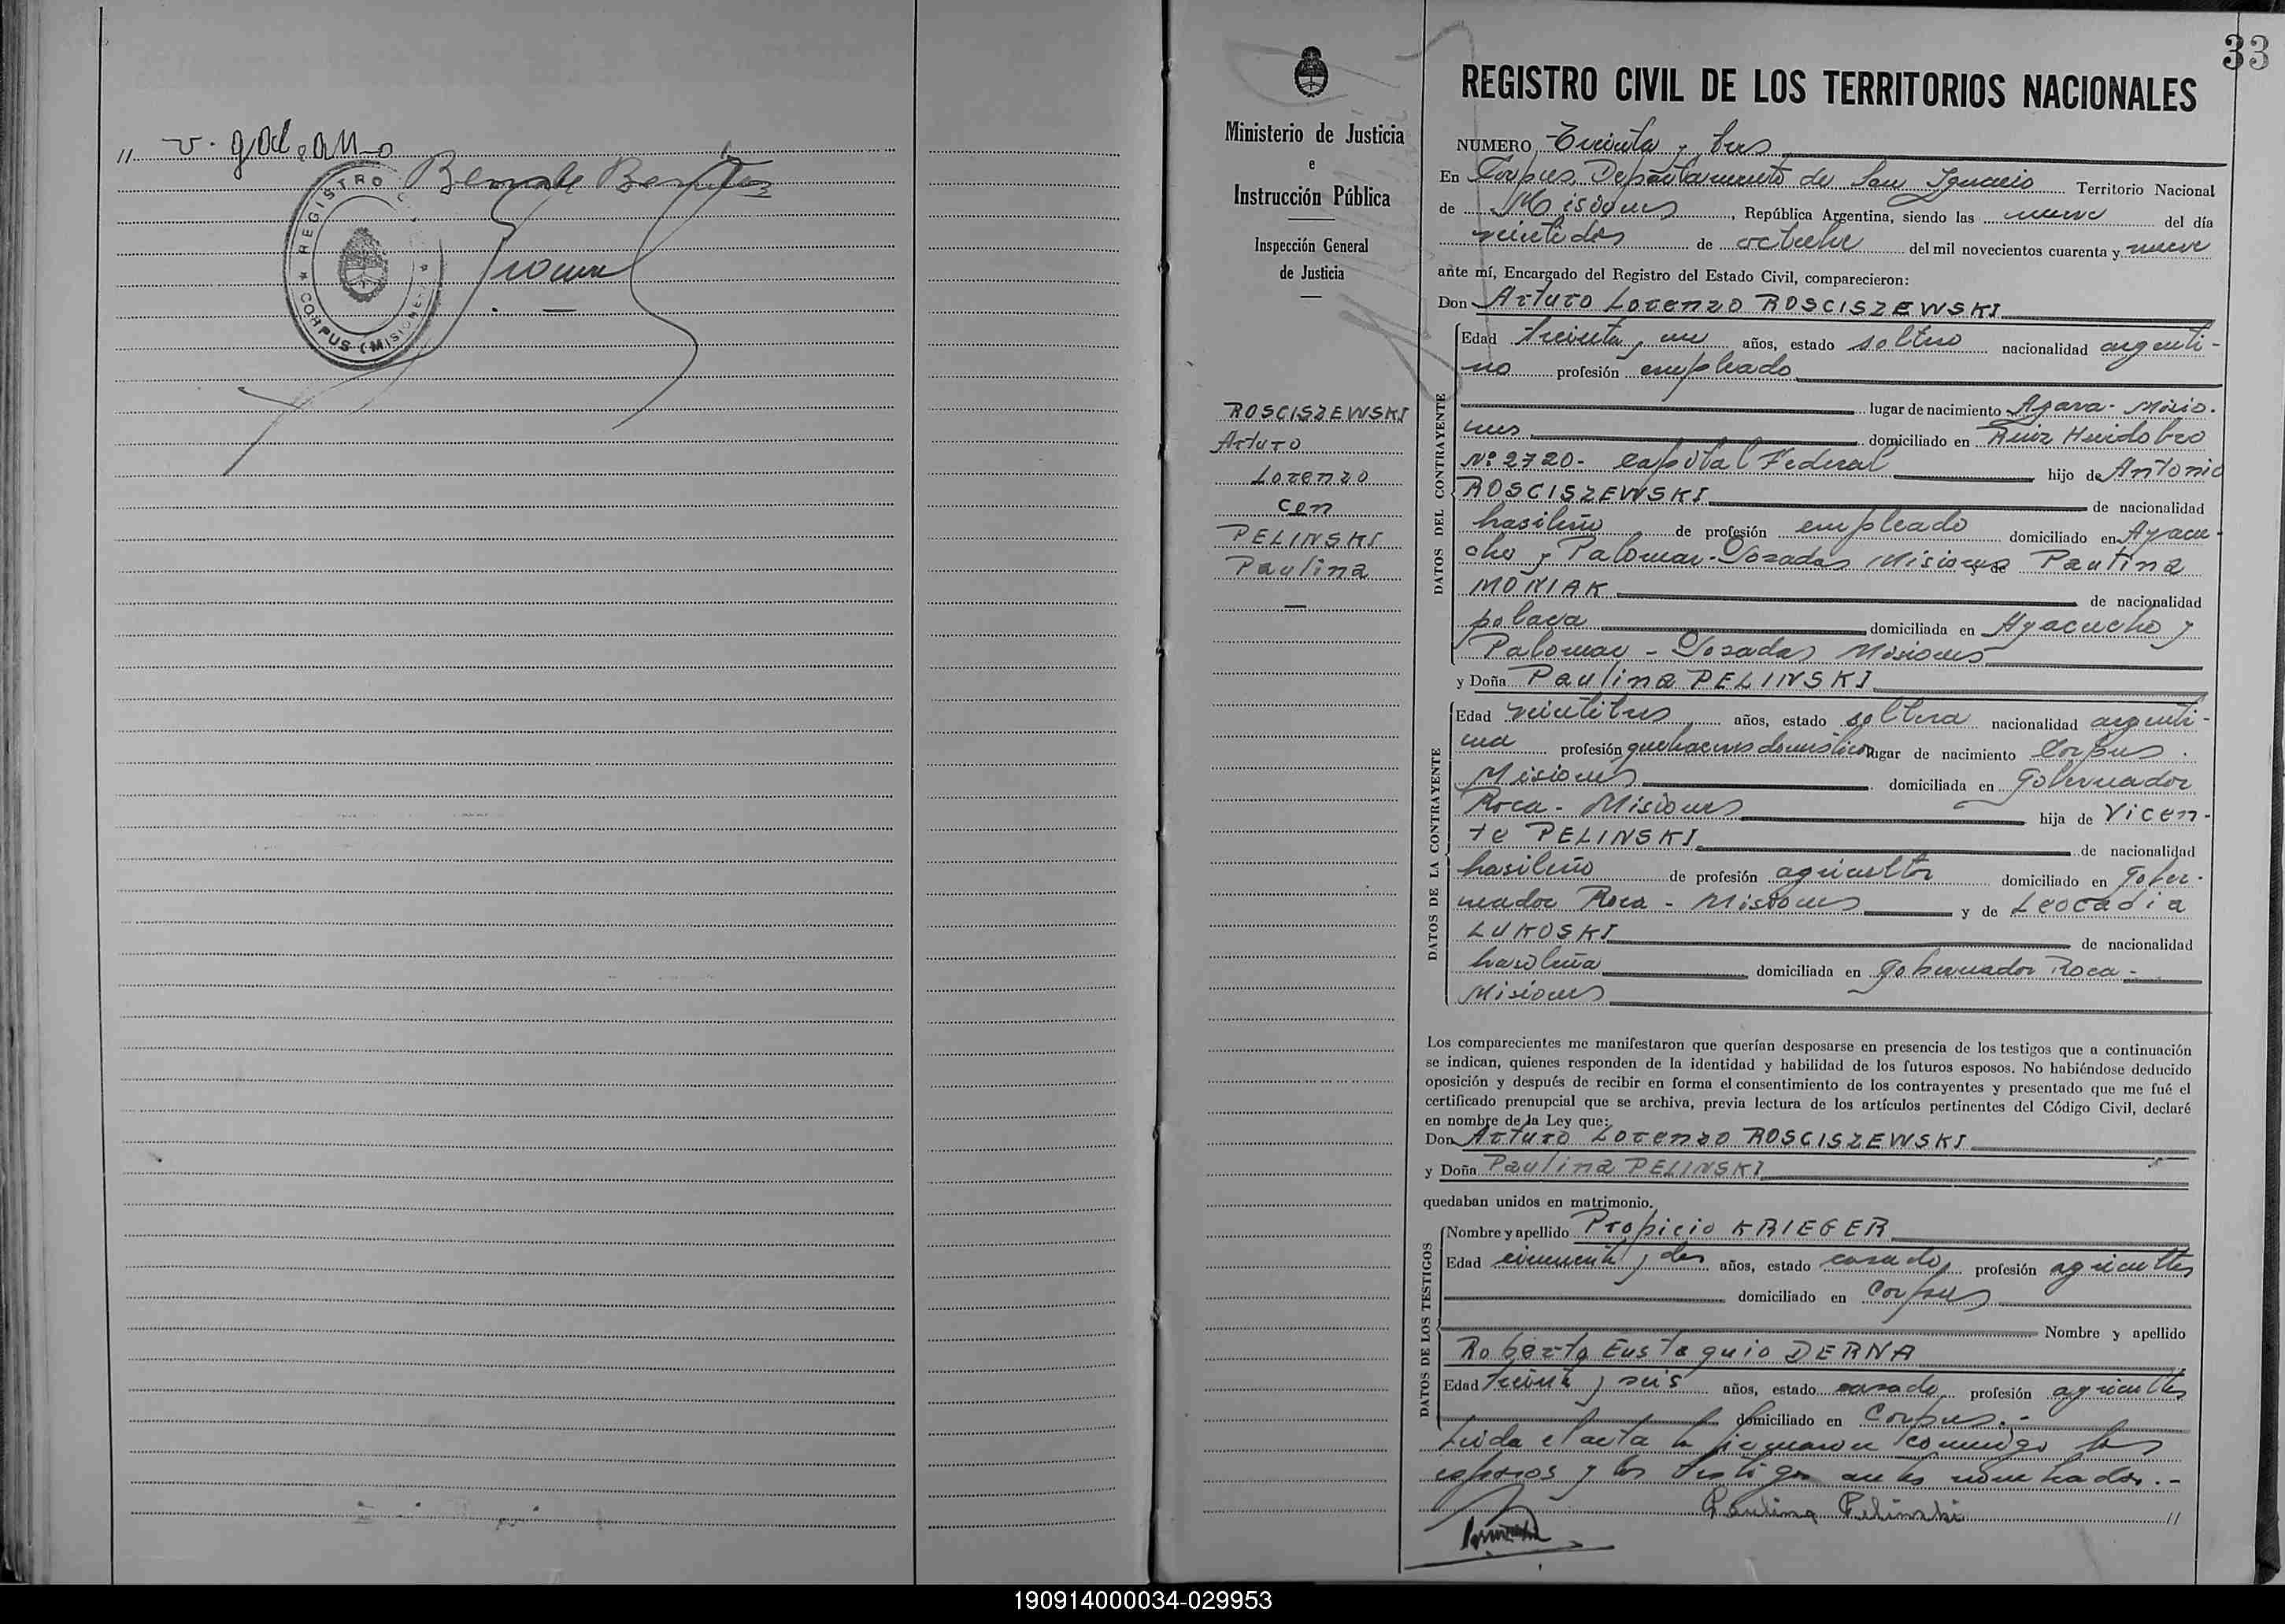 REGISTRO
CORPUS (MISIONES)
33
Ministerio de Justicia
e
Instrucción Pública
Inspección General
de Justicia
ROSCISZEWSKI
Arturo
Lorenzo
con
PELINSKI
Paulina
REGISTRO CIVIL DE LOS TERRITORIOS NACIONALES
NUMERO Treinta y tres
En Corpus, Departamento de San Ignacio Territorio Nacional
de Misiones, República Argentina, siendo las nueve del día
veintidos de octubre del mil novecientos cuarenta y nueve
ante mí, Encargado del Registro del Estado Civil, comparecieron:
Don Arturo Lorenzo ROSCISZEWSKI
DATOS DEL CONTRAYENTE
Edad treinta y un años, estado soltero nacionalidad argenti-
no profesión empleado
lugar de nacimiento Azara- Misio-
nes domiciliado en Ruiz Huidobro
Nº 2720- Capital Federal hijo de Antonio
ROSCISZEWSKI de nacionalidad
brasileño de profesión empleado domiciliado en Ayacu-
cho y Palomar- Posadas Misiones y de Paulina
MONIAK de nacionalidad
polaca domiciliada en Ayacucho y
Palomar - Posadas Misiones
y Doña Paulina PELINSKI
DATOS DE LA CONTRAYENTE
Edad veintitres años, estado soltera nacionalidad argenti-
na profesión quehaceres domésticos lugar de nacimiento Corpus-
Misiones domiciliada en Gobernador
Roca- Misiones hija de Vicen-
te PELINSKI de nacionalidad
brasileño de profesión agricultor domiciliado en Gober-
nador Roca - Misiones y de Leocadia
LUKOSKI de nacionalidad
brasileña domiciliada en Gobernador Roca-
Misiones
Los comparecientes me manifestaron que querían desposarse en presencia de los testigos que a continuación
se indican, quienes responden de la identidad y habilidad de los futuros esposos. No habiéndose deducido
oposición y después de recibir en forma el consentimiento de los contrayentes y presentado que me fué el
certificado prenupcial que se archiva, previa lectura de los artículos pertinentes del Código Civil, declaré
en nombre de la Ley que:
Don Arturo Lorenzo ROSCISZEWSKI
y Doña Paulina PELINSKI
quedaban unidos en matrimonio.
DATOS DE LOS TESTIGOS
Nombre y apellido Propicio KRIEGER
Edad cincuenta y dos años, estado casado profesión agricultor
domiciliado en Corpus
Nombre y apellido
Roberto Eustaquio DERNA
Edad treinta y seis años, estado casado profesión agricultor
domiciliado en Corpus.-
Leida el acta la firmaron conmigo los
esposos y los testigos antes nombrados.-
Paulina Pelinski //
190914000034-029953